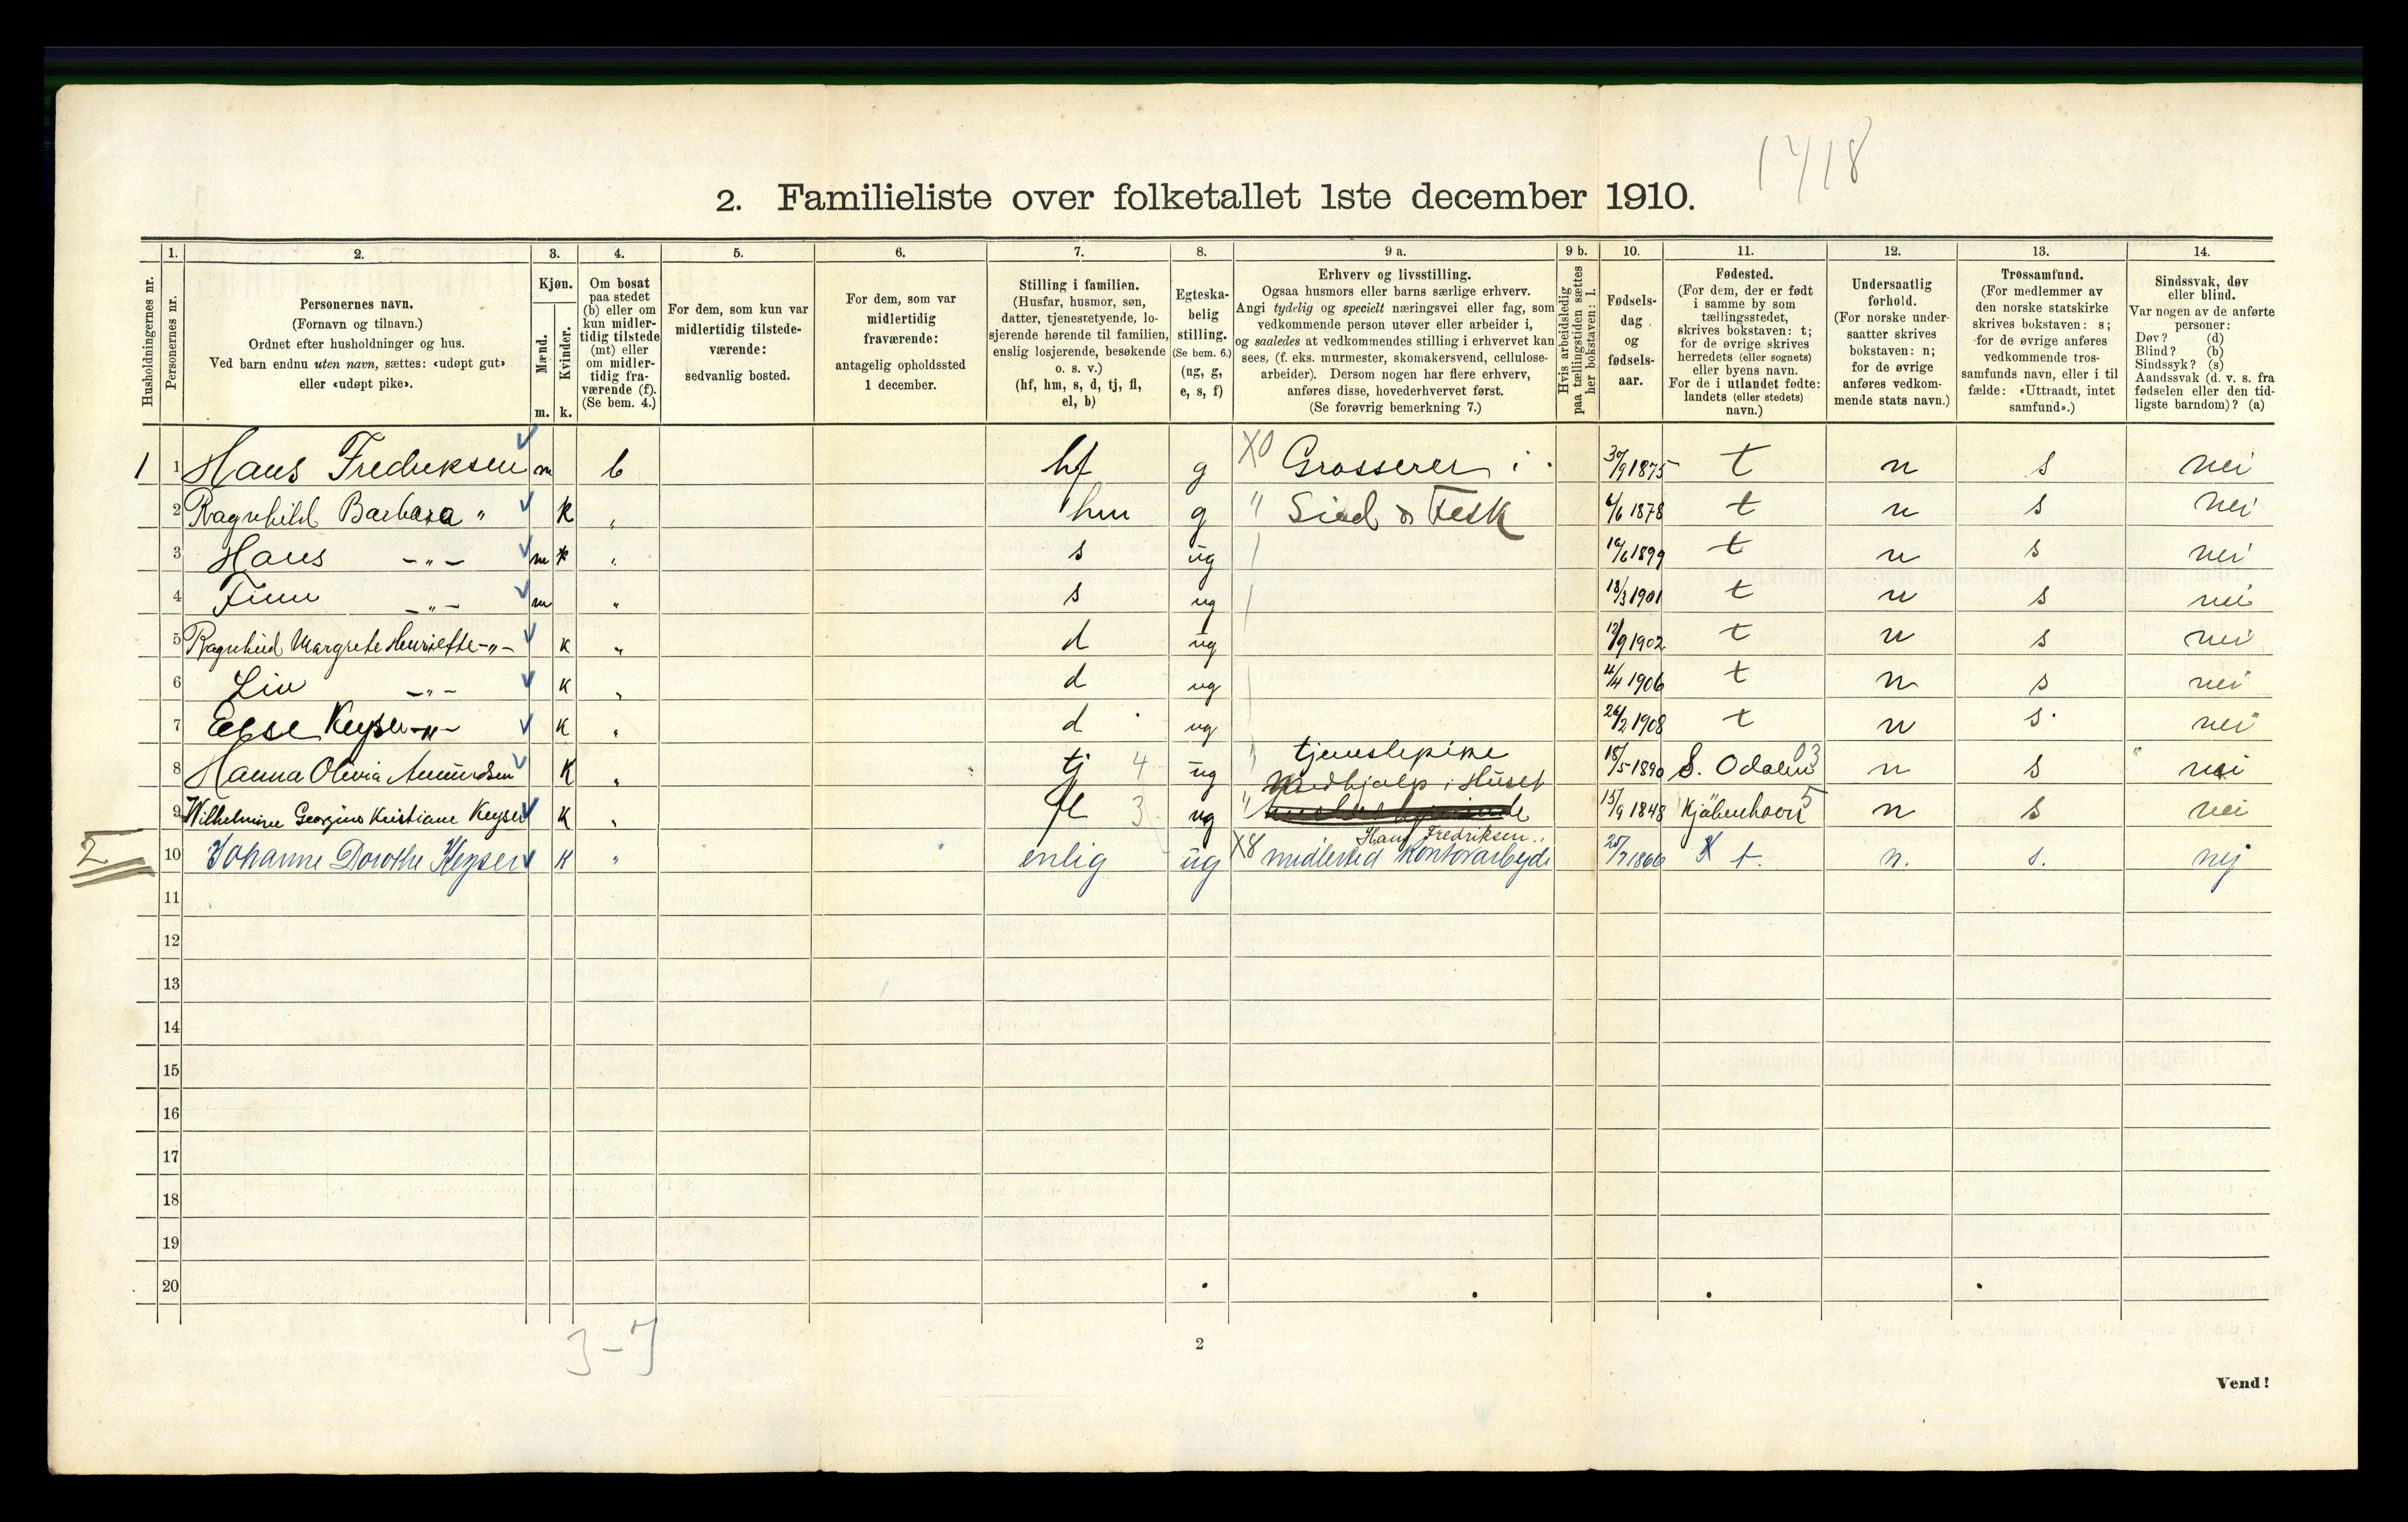 1718
2. Familieliste over folketallet 1ste december 1910.
Husholdningernes nr.
1.
Personernes nr.
2.
Personernes navn.
(Fornavn og tilnavn.)
Ordnet efter husholdninger og hus.
Ved barn endnu uten navn, sættes: «udøpt gut»
eller «udøpt pike».
3.
Kjøn.
Mænd.
Kvinder.
m. k.
4.
Om bosat
paa stedet
(b) eller om
kun midler-
tidig tilstede
(mt) eller
om midler-
tidig fra-
værende (f).
(Se bem. 4.)
5.
For dem, som kun var
midlertidig tilstede-
værende:
sedvanlig bosted.
6.
For dem, som var
midlertidig
fraværende:
antagelig opholdssted
1 december.
7.
Stilling i familien.
(Husfar, husmor, søn,
datter, tjenestetyende, lo-
sjerende hørende til familien,
enslig losjerende, besøkende
o. s. v.)
(hf, hm, s, d, tj, fl,
el, b)
8.
Egteska-
belig
stilling.
(Se bem. 6.)
(ug, g,
e, s, f)
9 a.
Erhverv og livsstilling.
Ogsaa husmors eller barns særlige erhverv.
Angi tydelig og specielt næringsvei eller fag, som
vedkommende person utøver eller arbeider i,
og saaledes at vedkommendes stilling i erhvervet kan
sees, (f. eks. murmester, skomakersvend, cellulose-
arbeider). Dersom nogen har flere erhverv,
anføres disse, hovederhvervet først.
(Se forøvrig bemerkning 7.)
9 b.
Hvis arbeidsledig
paa tællingstiden sættes
her bokstaven: l.
10.
Fødsels-
dag
og
fødsels-
aar.
11.
Fødested.
(For dem, der er født
i samme by som
tællingsstedet,
skrives bokstaven: t;
for de øvrige skrives
herredets (eller sognets)
eller byens navn.
For de i utlandet fødte:
landets (eller stedets)
navn.)
12.
Undersaatlig
forhold.
(For norske under-
saatter skrives
bokstaven: n;
for de øvrige
anføres vedkom-
mende stats navn.)
13.
Trossamfund.
(For medlemmer av
den norske statskirke
skrives bokstaven: s;
for de øvrige anføres
vedkommende tros-
samfunds navn, eller i til
fælde: «Uttraadt, intet
samfund».)
14.
Sindssvak, døv
eller blind.
Var nogen av de anførte
personer:
Døv? (d)
Blind? (b)
Sindssyk? (s)
Aandssvak (d. v. s. fra
fødselen eller den tid-
ligste barndom)? (a)
1 1 Hans Fredriksen m b hf g X0 Grosserer i 30/9 1875 t n s nei
2 Ragnhild Barbara " k " hm g " Sild & Fesk 6/6 1878 t n s nei
3 Hans -"- m k " s ug 19/6 1899 t n s nei
4 Finn -"- m " s ug 18/3 1901 t n s nei
5 Ragnhild Margrete Henriette -"- k " d ug 12/9 1902 t n s nei
6 Liv -"- k " d ug 4/4 1906 t n s nei
7 Else Keyser -"- k " d ug 26/2 1908 t n s nei
8 Hanna Olivia Amundsen K " tj 4 ug tjenstepike 18/5 1890 S. Odalen 03 n s nei
9 Wilhelmine Georgine Kristiane Keyser k " fl 3 ug " Medhjælp i Huset 15/9 1848 Kjøbenhavn 5 n s nei
Hans Fredriksen
2 10 Johanne Dorothe Keyser k " enlig ug X8 midlertid Kontorarbejde 25/7 1866 X t. n. s. nej
11
12
13
14
15
16
17
18
19
20
3-7
2
Vend!